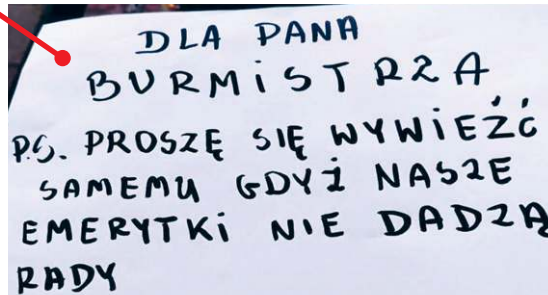 DLA PANA
BURMiSTRZA
P.S. PROSZĘ SIĘ WYWiEŹĆ
SAMEMU GDYŻ NASZE
EMERYTKi NIE DADZĄ
RADY